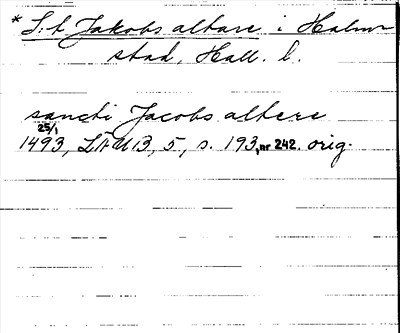 * S:t Jakobs altare i Halm-
stad, Hall. l.
sancti Jacobs altere
25/1
1493, LFMUB, 5, s. 193, nr 242. orig.